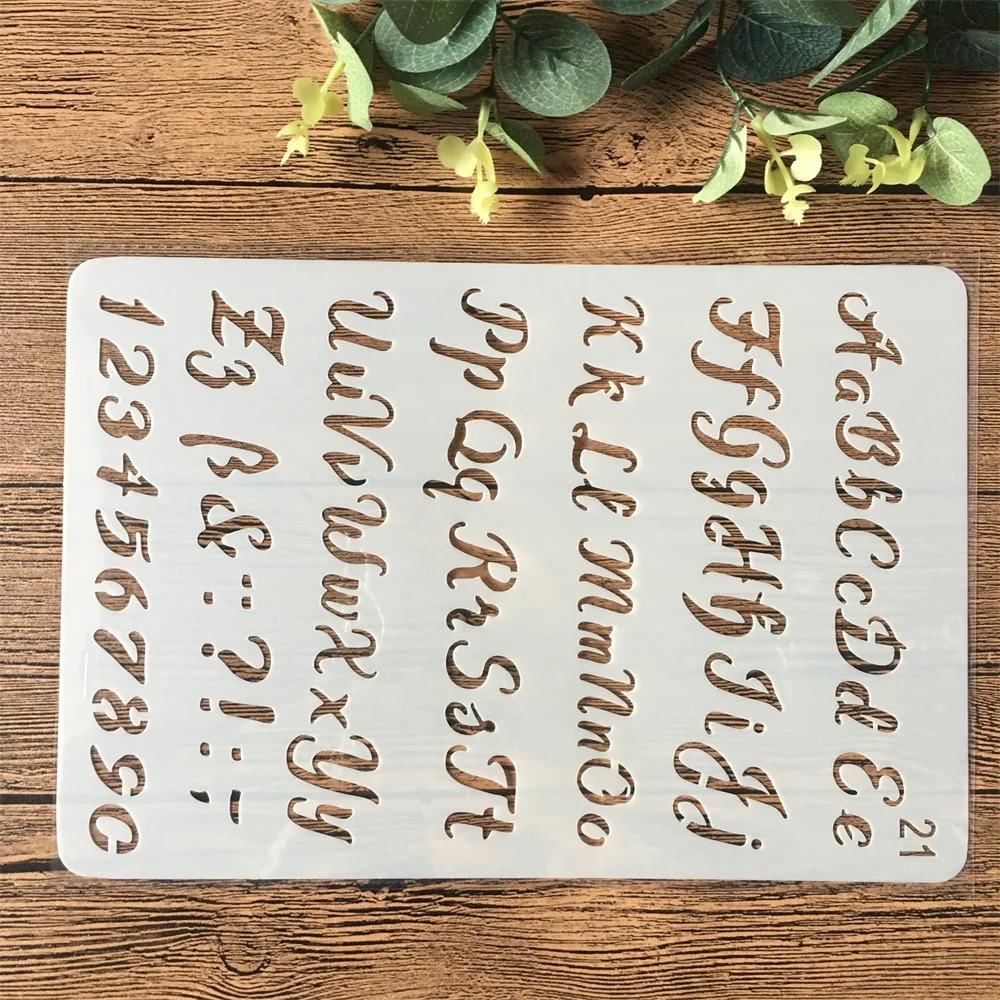 21
Aa Bb Cc Dd Ee
Ff Gg Hh Ii Jj
Kk Ll Mm Nn Oo
Pp Qq Rr Ss Tt
Uu Vv Ww Xx Yy
Zz ß & ? ! : ;
1234567890